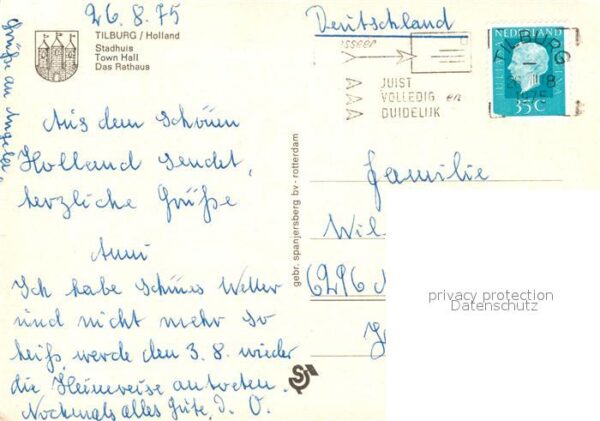 26.8.75
Deutschland
TILBURG / Holland
Stadhuis
Town Hall
Das Rathaus
Grüße an Angela
Aus dem schönen
Holland sendet
herzliche Grüße
Anni
Ich habe schönes Wetter
und nicht mehr so
heiß, werde den 3. 8. wieder
die Heimreise antreten.
Nochmals alles Gute, D. O.
gebr. spanjersberg bv - rotterdam
JUIST
VOLLEDIG en
DUIDELIJK
TILBURG
1975
NEDERLAND
35 C
Familie
Wil
6296
privacy protection
Datenschutz